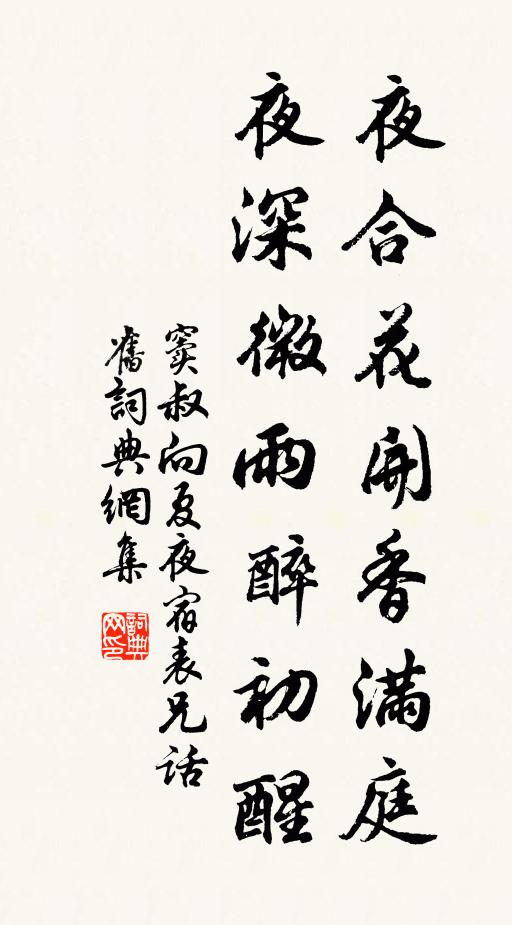 夜合花開香滿庭
夜深微雨醉初醒
竇叔向夏夜宿表兄話
舊詞典網集
詞典网印